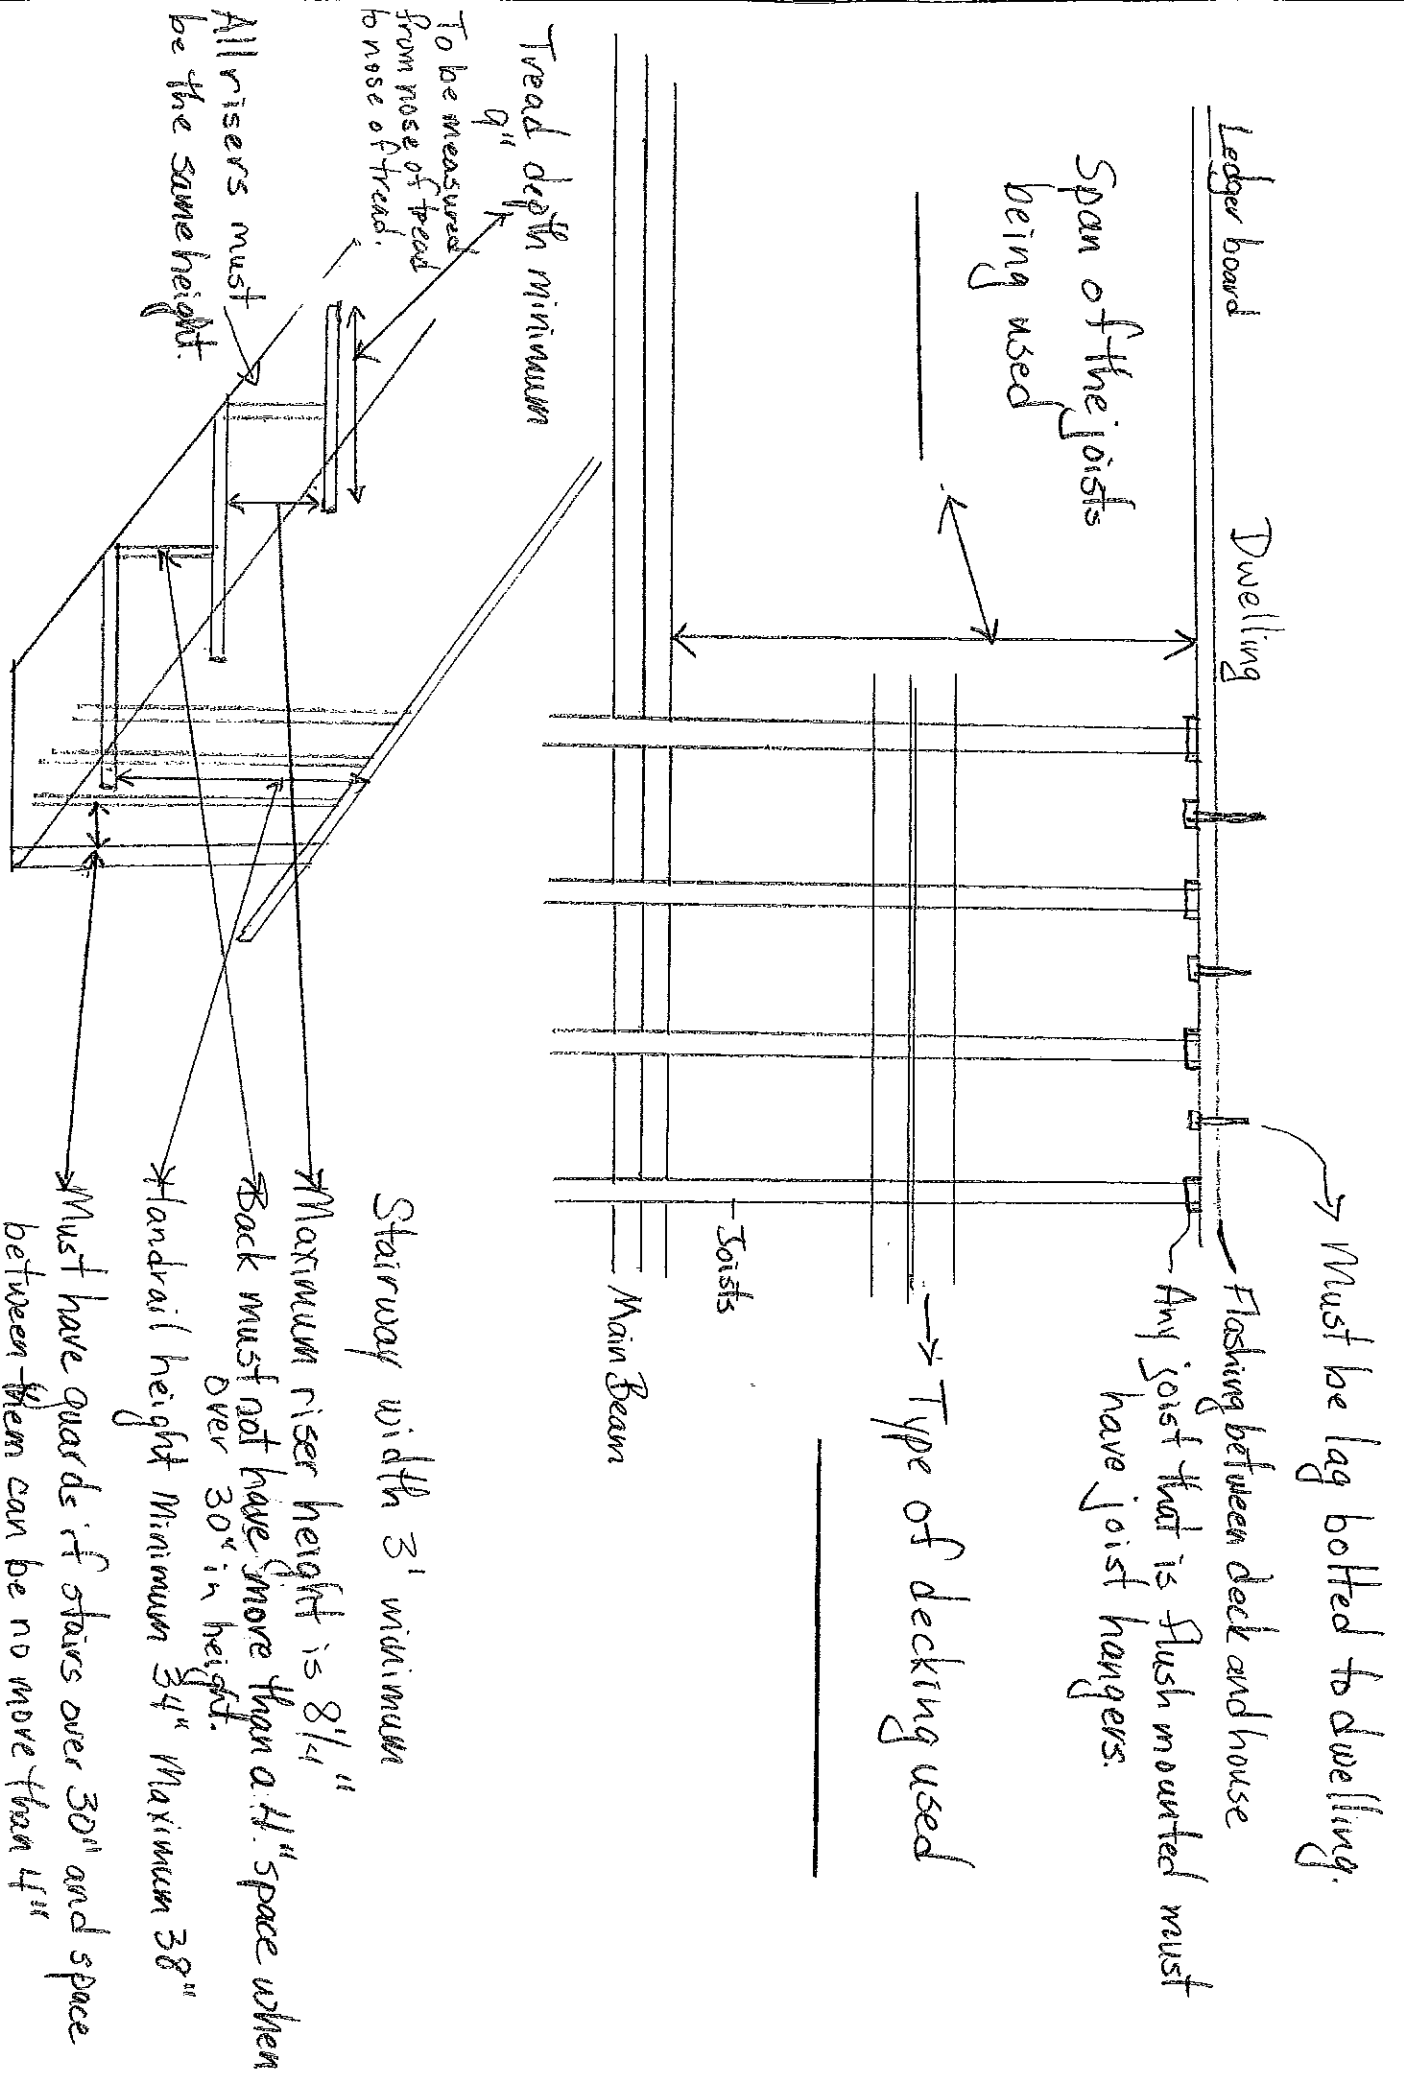 Must be lag bolted to dwelling.
Flashing between deck and house
Ledger board
Dwelling
Any joist that is flush mounted must
have joist hangers.
Span of the joists
being used
Type of decking used
Joists
Main Beam
Tread depth minimum
9"
To be measured
from nose of tread
to nose of tread.
All risers must
be the same height.
Stairway width 3' minimum
Maximum riser height is 8 1/4"
Back must not have more than a 4" space when
over 30" in height.
Handrail height Minimum 34" Maximum 38"
Must have guards if stairs over 30" and space
between them can be no more than 4"